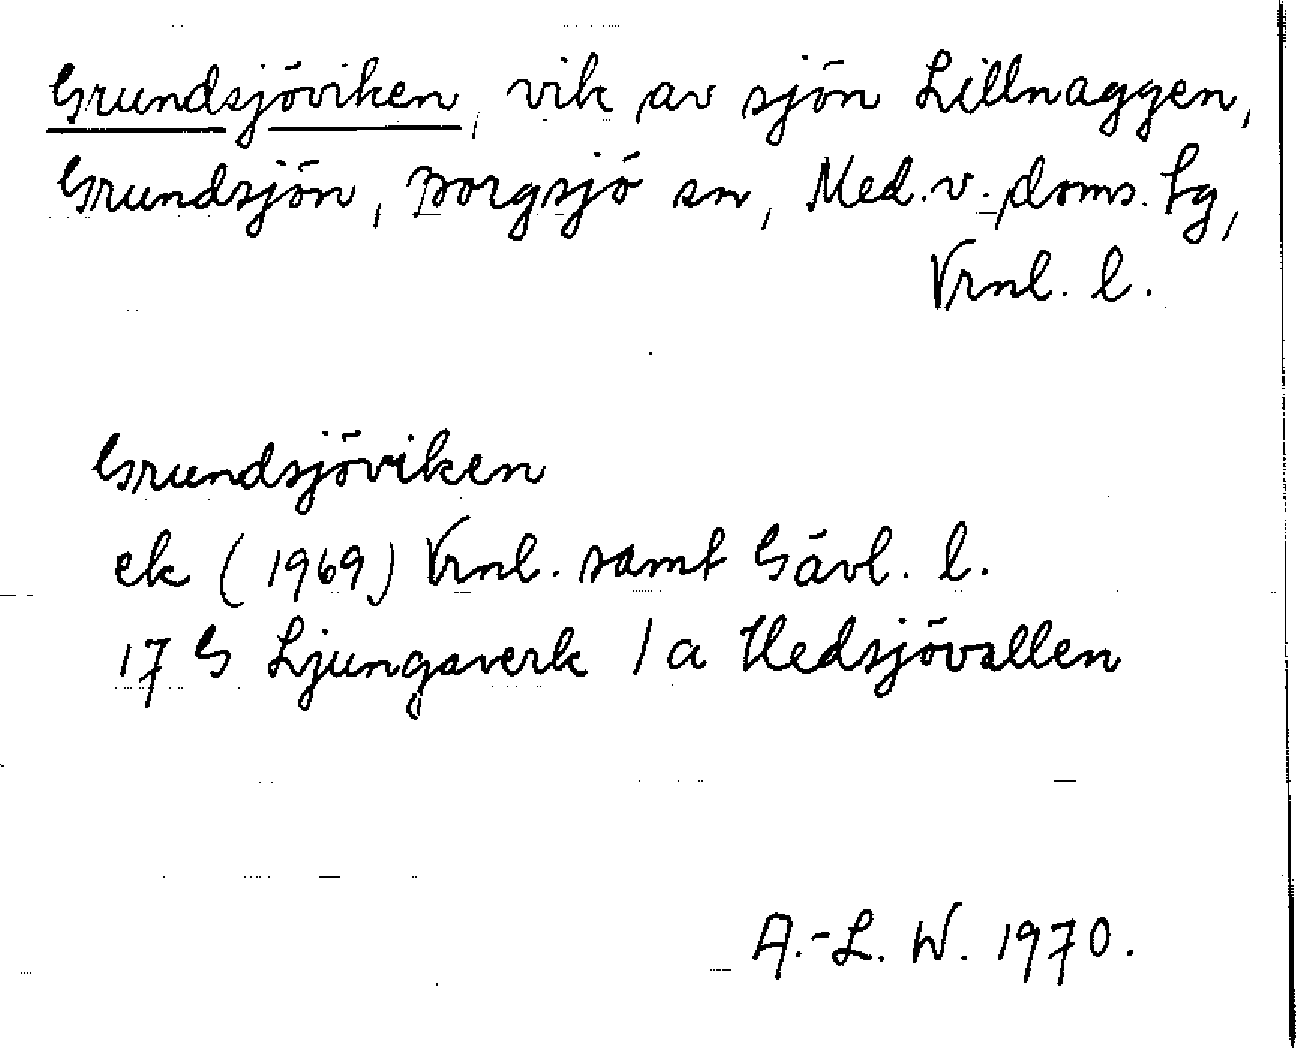 Grundsjöviken, vik av sjön Lillnaggen,
Grundsjön, Borgsjö sn, Med. v. doms. tg,
Vrnl. l.
Grundsjöviken
ek (1969) Vrnl. samt Gävl. l.
17 G Ljungaverk 1 a Hedsjövallen
A.-L. W. 1970.